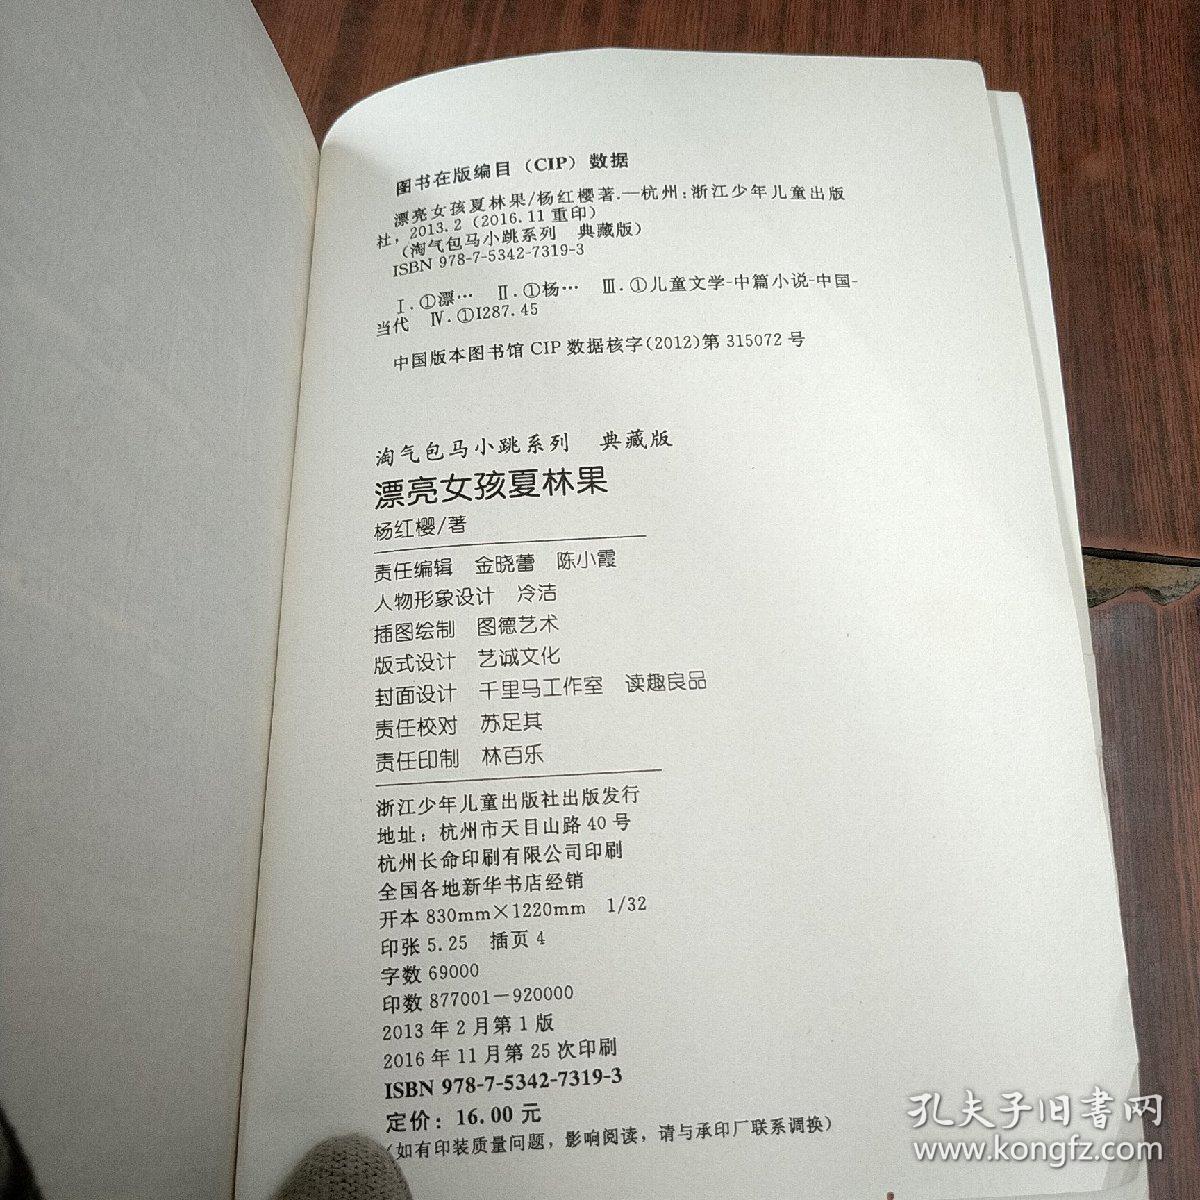 图书在版编目（CIP）数据
漂亮女孩夏林果/杨红樱著.—杭州：浙江少年儿童出版
社，2013.2（2016.11重印）
（淘气包马小跳系列 典藏版）
ISBN 978-7-5342-7319-3
Ⅰ.①漂… Ⅱ.①杨… Ⅲ.①儿童文学-中篇小说-中国-
当代 Ⅳ.①I287.45
中国版本图书馆CIP数据核字(2012)第315072号
淘气包马小跳系列 典藏版
漂亮女孩夏林果
杨红樱/著
责任编辑 金晓蕾 陈小霞
人物形象设计 冷洁
插图绘制 图德艺术
版式设计 艺诚文化
封面设计 千里马工作室 读趣良品
责任校对 苏足其
责任印制 林百乐
浙江少年儿童出版社出版发行
地址：杭州市天目山路40号
杭州长命印刷有限公司印刷
全国各地新华书店经销
开本 830mm×1220mm 1/32
印张 5.25 插页 4
字数 69000
印数 877001－920000
2013年2月第1版
2016年11月第25次印刷
ISBN 978-7-5342-7319-3
定价：16.00元
（如有印装质量问题，影响阅读，请与承印厂联系调换）
孔夫子旧書网
www.kongfz.com